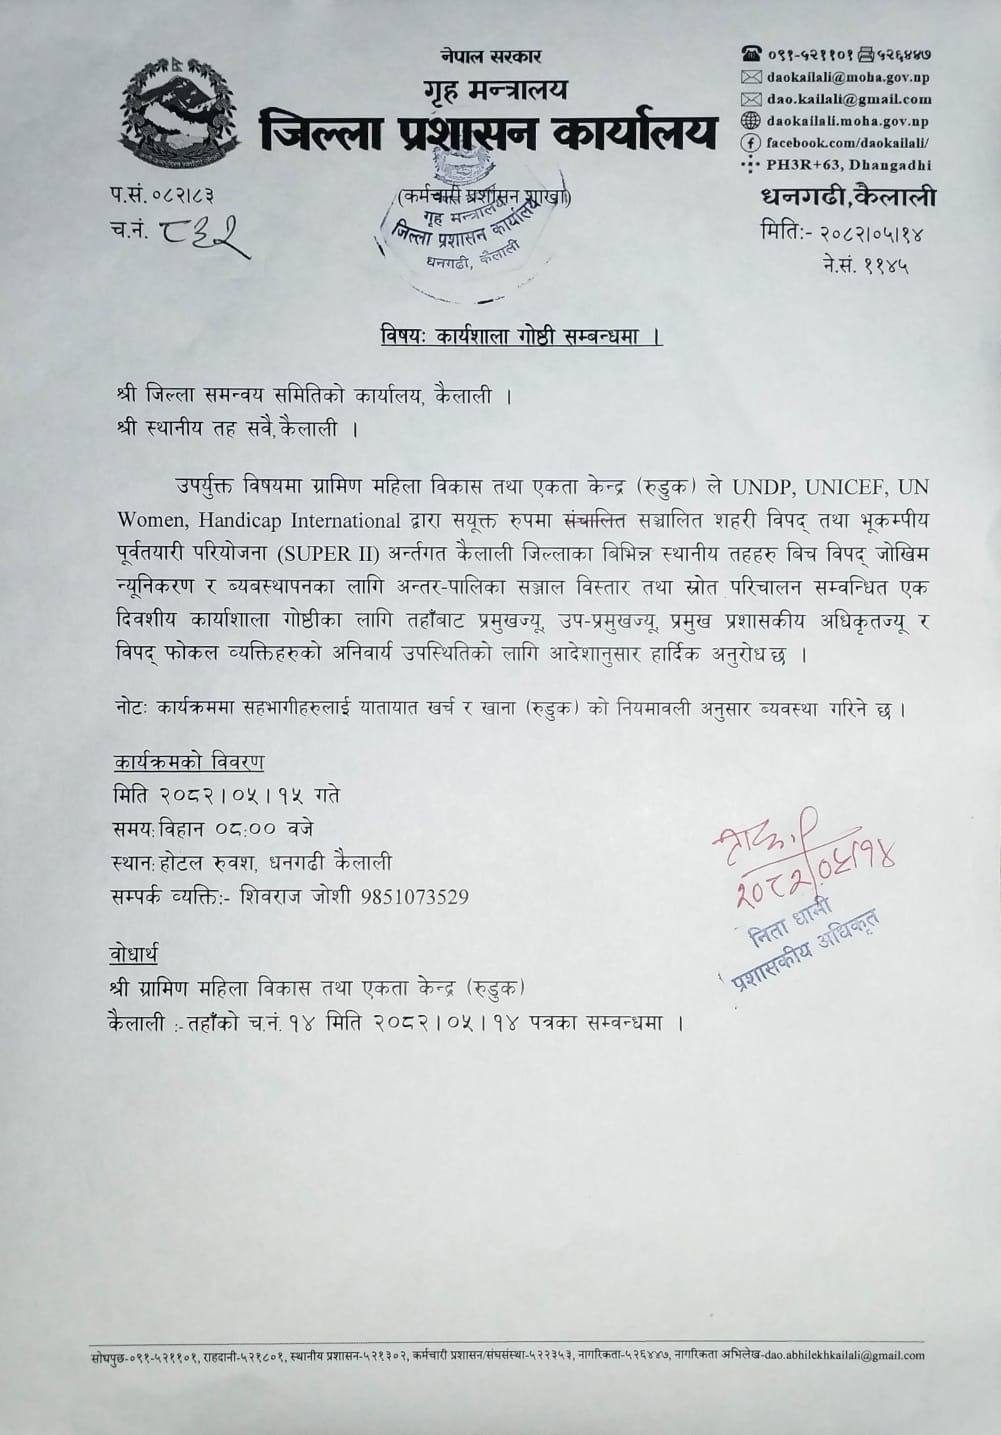 नेपाल सरकार
गृह मन्त्रालय
जिल्ला प्रशासन कार्यालय
(कर्मचारी प्रशासन शाखा)
०९१-५२११०१ ५२६४४७
daokailali@moha.gov.np
dao.kailali@gmail.com
daokailali.moha.gov.np
facebook.com/daokailali/
PH3R+63, Dhangadhi
धनगढी,कैलाली
प.सं.०८२।८३
च.नं. ८३२
मिति:- २०८२।०५।१४
ने.सं. ११४५
गृह मन्त्रालय
जिल्ला प्रशासन कार्यालय
धनगढी, कैलाली
विषयः कार्यशाला गोष्ठी सम्बन्धमा ।
श्री जिल्ला समन्वय समितिको कार्यालय, कैलाली ।
श्री स्थानीय तह सवै,कैलाली ।
उपर्युक्त विषयमा ग्रामिण महिला विकास तथा एकता केन्द्र (रुडुक) ले UNDP, UNICEF, UN
Women, Handicap International द्वारा सयूक्त रुपमा संचालित सञ्चालित शहरी विपद् तथा भूकम्पीय
पूर्वतयारी परियोजना (SUPER II) अर्न्तगत कैलाली जिल्लाका बिभिन्न स्थानीय तहहरु बिच विपद् जोखिम
न्यूनिकरण र ब्यबस्थापनका लागि अन्तर-पालिका सञ्जाल विस्तार तथा स्रोत परिचालन सम्वन्धित एक
दिवशीय कार्याशाला गोष्ठीका लागि तहाँबाट प्रमुखज्यू, उप-प्रमुखज्यू, प्रमुख प्रशासकीय अधिकृतज्यू र
विपद् फोकल व्यक्तिहरुको अनिवार्य उपस्थितिको लागि आदेशानुसार हार्दिक अनुरोध छ ।
नोटः कार्यक्रममा सहभागीहरुलाई यातायात खर्च र खाना (रुडुक) को नियमावली अनुसार ब्यवस्था गरिने छ ।
कार्यक्रमको विवरण
मिति २०८२।०५।१५ गते
समय:विहान ०८:०० वजे
स्थान:होटल रुवश, धनगढी कैलाली
सम्पर्क व्यक्ति:- शिवराज जोशी 9851073529
२०८२।०५।१४
निता धामी
प्रशासकीय अधिकृत
वोधार्थ
श्री ग्रामिण महिला विकास तथा एकता केन्द्र (रुडुक)
कैलाली :-तहाँको च.नं. १४ मिति २०८२।०५।१४ पत्रका सम्वन्धमा ।
सोधपुछ-०९१-५२११०१, राहदानी-५२१८०१, स्थानीय प्रशासन-५२१३०२, कर्मचारी प्रशासन/संघसंस्था-५२२३५३, नागरिकता-५२६४४७, नागरिकता अभिलेख-dao.abhilekhkailali@gmail.com